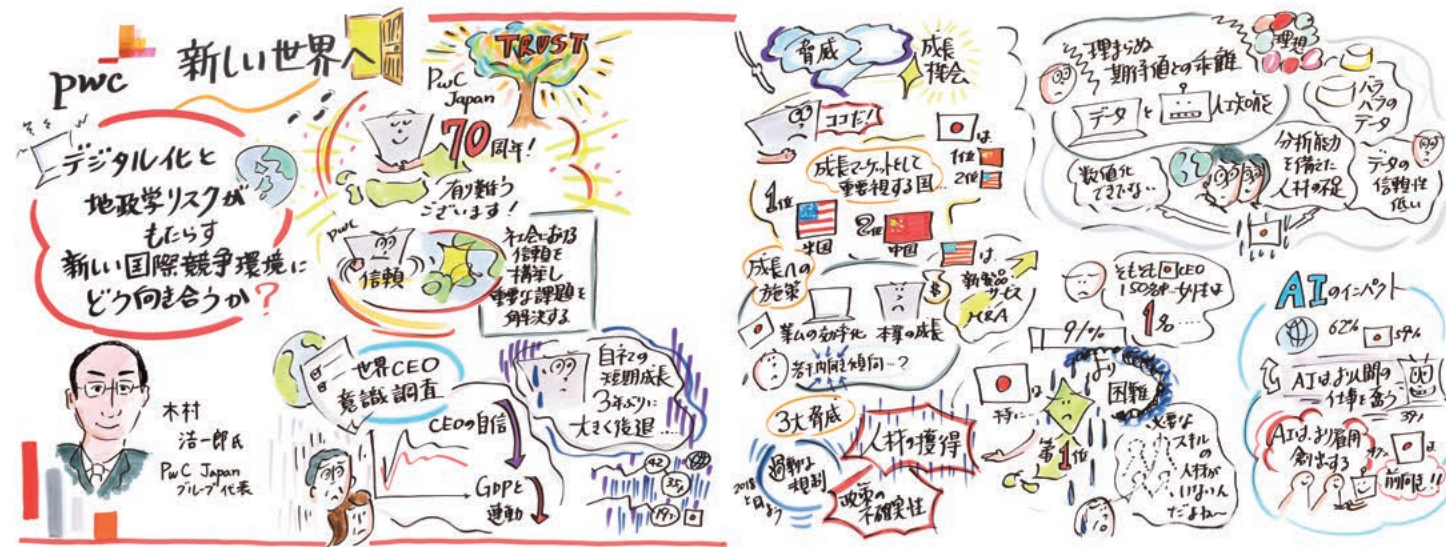 pwc
新しい世界へ
TRUST
デジタル化と
地政学リスクが
もたらす
新しい国際競争環境に
どう向き合うか?
木村
浩一郎氏
PwC Japan
グループ代表
PwC
Japan
70周年!
有難う
ございます!
pwc
信頼
社会における
信頼を
構築し
重要な課題を
解決する
世界CEO
意識調査
CEOの自信
GDPと
連動
自社の
短期成長
3年ぶりに
大きく後退……
42
35
19
脅威
成長
機会
ココだ!
成長マーケットとして
重要視する国…
1位
米国
2位
中国
は
1位
2位
成長への
施策
業務の効率化
本業の成長
は
新製品
サービス
M&A
若干内向き傾向…?
3大脅威
2018
と同よう
過剰な
規制
人材の獲得
政策の
不確実性
埋まらぬ
期待値との乖離
理想
データ
と
人工知能
バラ
バラの
データ
数値化
できてない..
分析能力
を備えた
人材の不足
データの
信頼性
低い
そもそも CEO
150名中…女性は
1%……
91%
は
特に…
より
困難
第1位
必要な
スキル
の
人材が
いないん
だよね〜
AIのインパクト
62%
59%
AIはより人間の
仕事を奪う
39%
AIは、より雇用
創出する
は
前向き!!